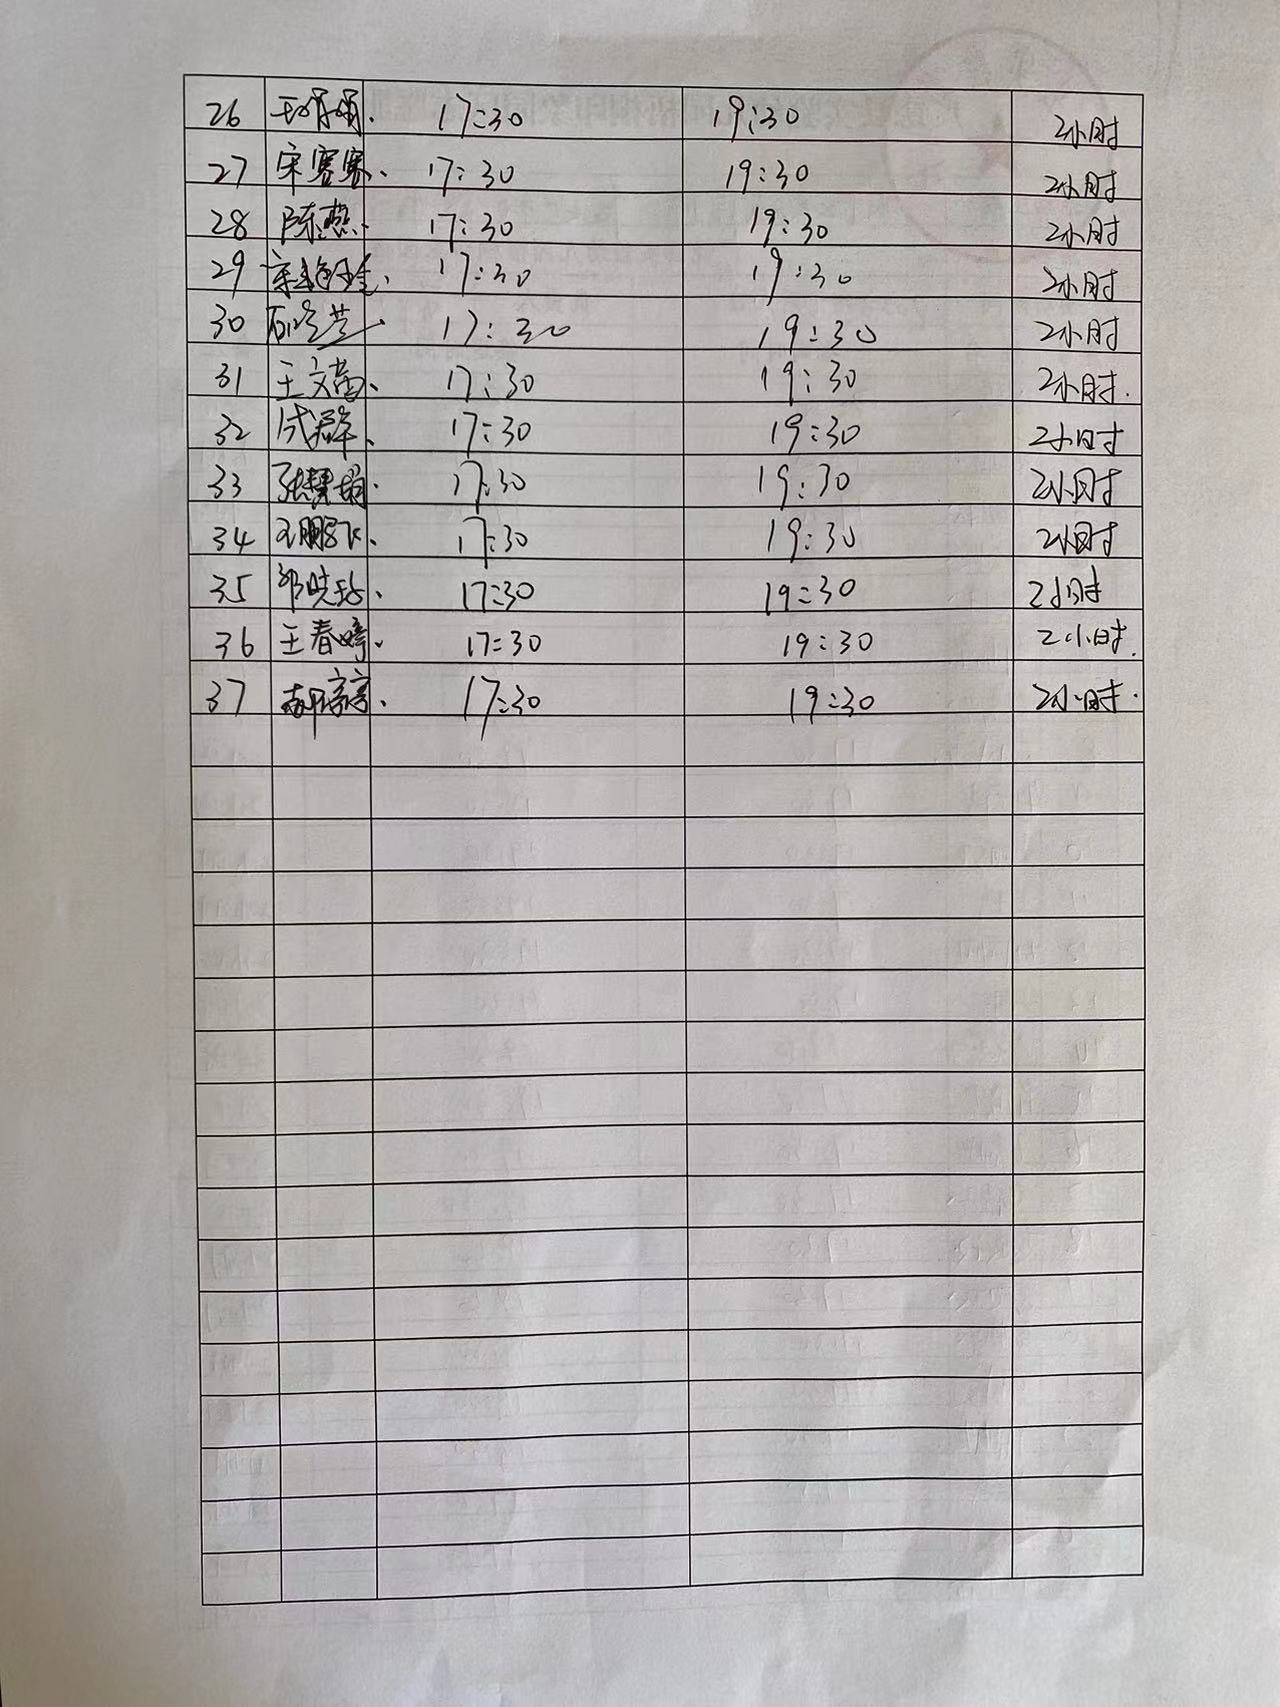 26 17:30 19:30 2小时
27 宋赛赛、 17:30 19:30 2小时
28 陈燕、 17:30 19:30 2小时
29 17:30 19:30 2小时
30 17:30 19:30 2小时
31 王文茜、 17:30 19:30 2小时.
32 成群、 17:30 19:30 2小时
33 张慧娟. 17:30 19:30 2小时
34 王鹏飞、 17:30 19:30 2小时
35 17:30 19:30 2小时
36 王春婷、 17:30 19:30 2小时.
37 郝亭亭、 17:30 19:30 2小时.